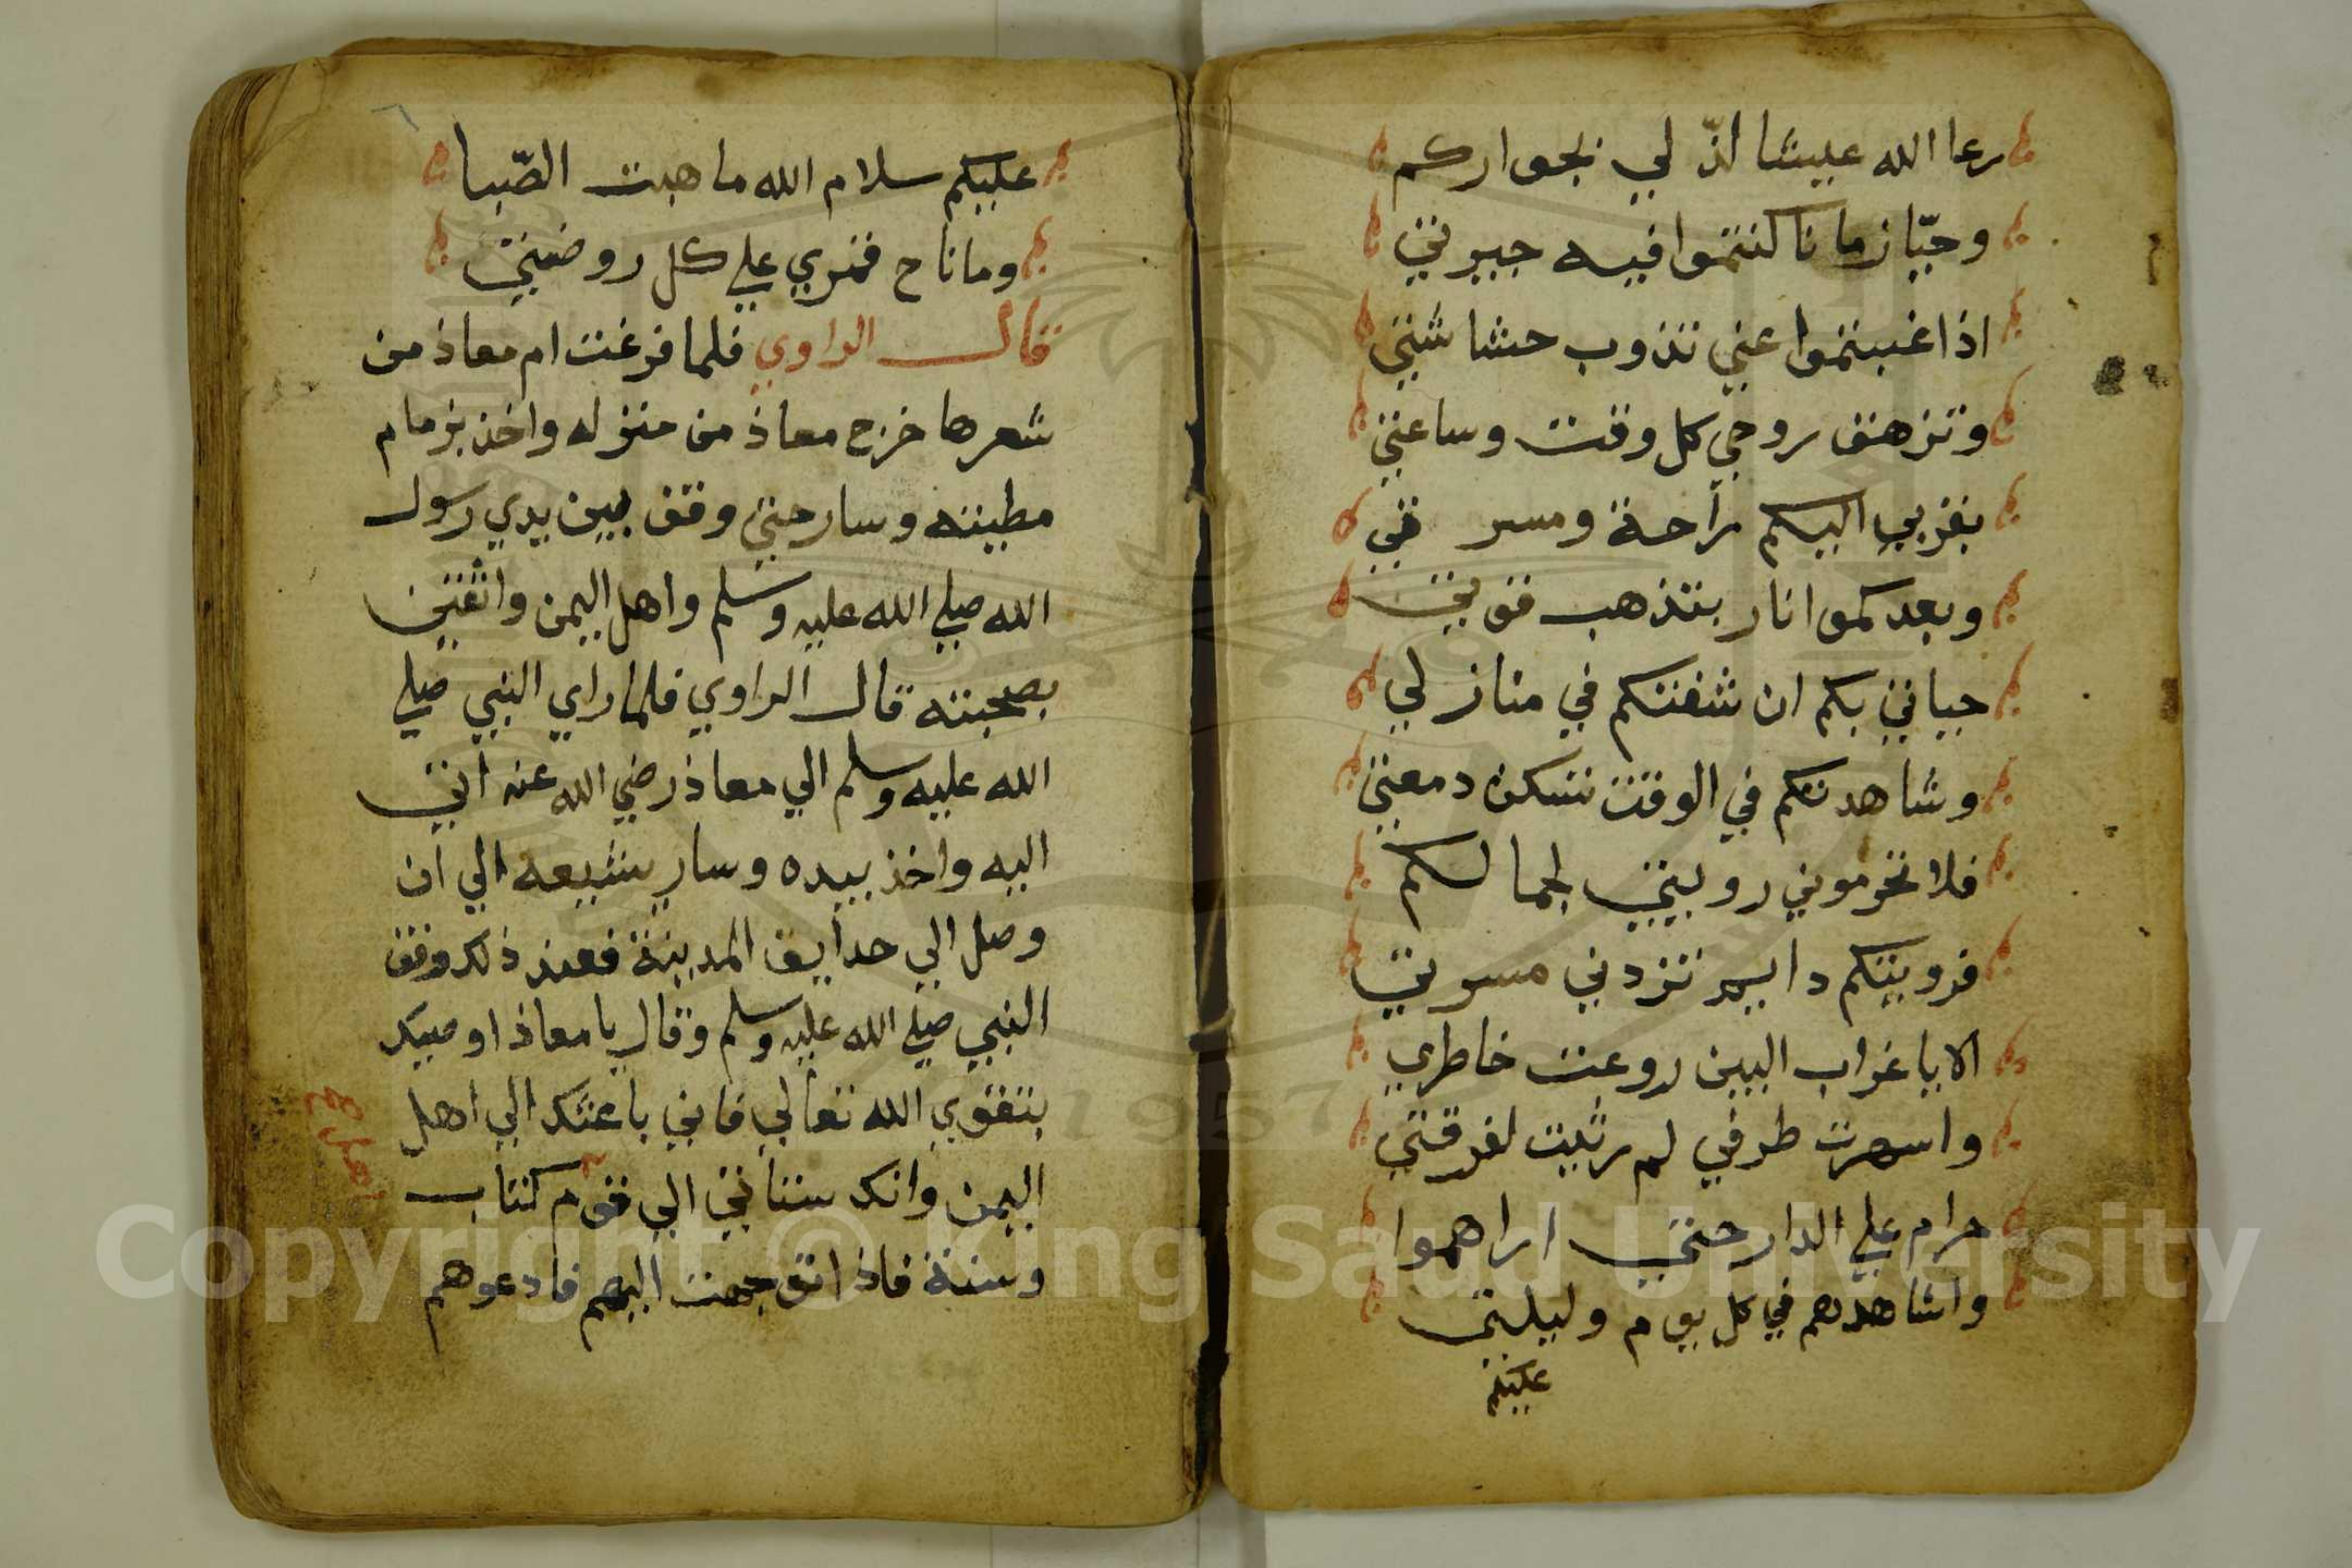 رعا الله عيشا لذّ لي بجواركم
وحيّا زمانا كنتموا فيه جيرتي
اذا غبتموا عني تذوب حشاشتي
وتزهق روحي كل وقت وساعتي
بقربي اليكم راحة ومسرتي
وبعدكموا نار بتذهب قوتي
حياتي بكم ان شفتكم في منازلي
وشاهدتكم في الوقت تسكن دمعتي
فلا تحرموني رويتي لجمالكم
فرويتكم دايم تزدني مسرتي
الا يا غراب البين روعت خاطري
واسهرت طرفي لم رثيت لفرقتي
حرام علي الدار حتي اراهموا
واشاهدهم في كل يوم وليلتي
عليكم
٦
عليكم سلام الله ما هبت الصّبا
وما ناح قمري علي كل روضتي
قال الراوي فلما فرغت ام معاذ من
شعرها خرج معاذ من منزله واخذ بزمام
مطيته وسار حتي وقف بين يدي رسول
الله صلي الله عليه وسلم واهل اليمن واقفين
بصحبته قال الراوي فلما راي النبي صلي
الله عليه وسلم الي معاذ رضي الله عنه اتي
اليه واخذ بيده وسار يشيعه الي ان
وصل الي حدايق المدينة فعند ذلك وقف
النبي صلي الله عليه وسلم وقال يا معاذ اوصيك
بتقوي الله تعالي فاني باعثك الي اهل
اليمن وانك ستاتي الي قوم كتاب
اهل صح
وسنة فاذا توجهت اليهم فادعوهم
Copyright © King Saud University
1957